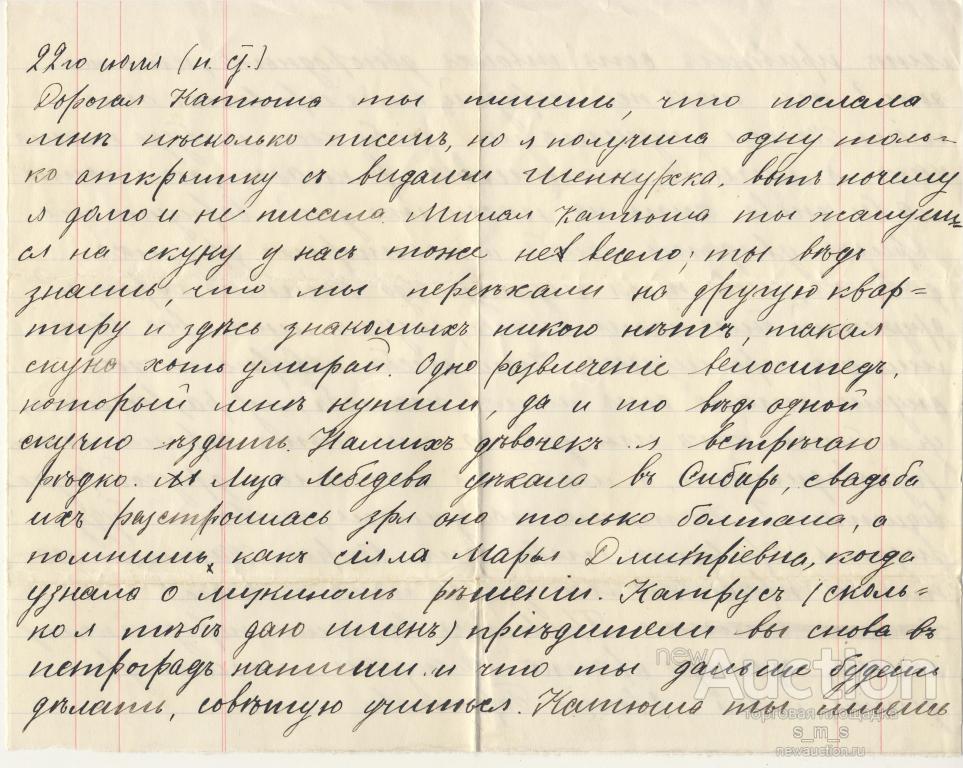 22го июля (н. ст.)
Дорогая Катюша ты пишешь, что послала
мнѣ нѣсколько писемъ, но я получила одну толь=
ко открытку съ видами Шенкурска, вотъ почему
я долго и не писала. Милая Катюша ты жалуешь=
ся на скуку у насъ тоже не весело; ты вѣдь
знаешь, что мы переѣхали на другую квар=
тиру и здѣсь знакомыхъ никого нѣтъ, такая
скука хоть умирай. Одно развлеченіе велосипедъ,
который мнѣ купили, да и то вѣдь одной
скучно ѣздить. Нашихъ дѣвочекъ я встрѣчаю
рѣдко. Лиза Лебедева уѣхала въ Сибирь, свадьба
ихъ разстроилась зря она только болтала, а
помнишь, какъ сіяла Марья Дмитріевна, когда
узнала о Лизкиномъ рѣшеніи. Катрусъ (сколь=
ко я тебѣ даю именъ) пріѣдите ли вы снова въ
петроградъ напиши и что ты дальше будешь
дѣлать, совѣтую учиться. Катюша ты
newAuction
торговая площадка
s_m_s
newauction.ru